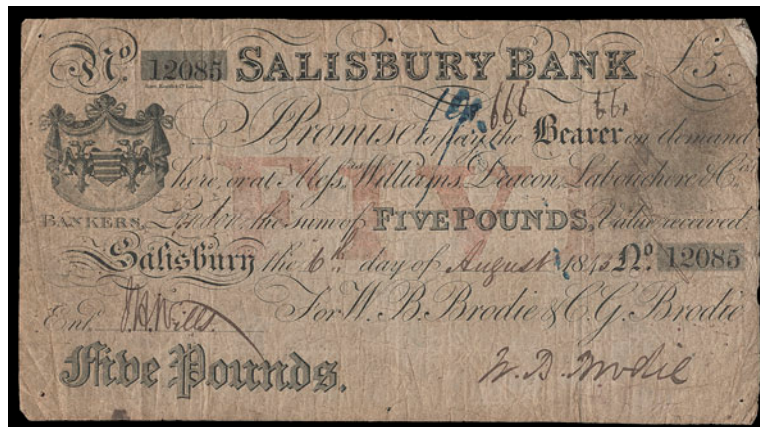 No. 12085 SALISBURY BANK £5
666 66
I Promise to pay the Bearer on demand
here, or at Messrs. Williams, Deacon, Labouchere & Co.
BANKERS, London, the sum of FIVE POUNDS, Value received
FIVE
Salisbury the 6th day of August 1843 No. 12085
For W. B. Brodie & C. G. Brodie
Entd. Wills
Five Pounds. W. B. Brodie